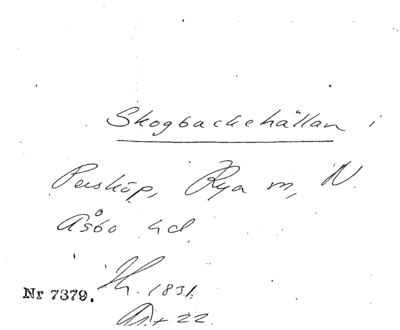 Skogbackehällan i
Perstöp, Rya m, N.
Åsbo hd
Nr 7379. 1831,
22.